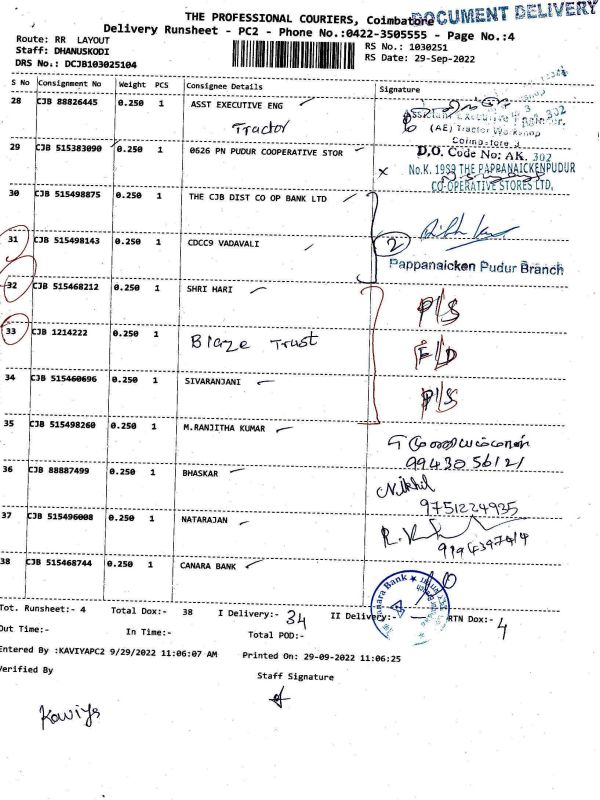 THE PROFESSIONAL COURIERS, Coimbatore
DOCUMENT DELIVERY
Delivery Runsheet - PC2 - Phone No.:0422-3505555 - Page No.:4
Route: RR LAYOUT
Staff: DHANUSKODI
DRS No.: DCJB103025104
RS No.: 1030251
RS Date: 29-Sep-2022
S No Consignment No Weight PCS Consignee Details Signature
28 CJB 88826445 0.250 1 ASST EXECUTIVE ENG
Tractor
Assistant Executive Engineer,
(AE) Tractor Workshop
Coimbatore.3
29 CJB 515383090 0.250 1 0626 PN PUDUR COOPERATIVE STOR
D.O. Code No: AK. 302
X No.K. 1939 THE PAPPANAICKENPUDUR
CO-OPERATIVE STORES LTD,
30 CJB 515498875 0.250 1 THE CJB DIST CO OP BANK LTD
31 CJB 515498143 0.250 1 CDCC9 VADAVALI
2
Pappanaicken Pudur Branch
32 CJB 515468212 0.250 1 SHRI HARI P/S
33 CJB 1214222 0.250 1 Blaze Trust F/D
34 CJB 515460696 0.250 1 SIVARANJANI P/S
35 CJB 515498260 0.250 1 M.RANJITHA KUMAR
9943056121
36 CJB 88887499 0.250 1 BHASKAR Nikhil
9751224935
37 CJB 515496008 0.250 1 NATARAJAN
38 CJB 515468744 0.250 1 CANARA BANK
Canara Bank
Tot. Runsheet:- 4 Total Dox:- 38 I Delivery:- 34 II Delivery:- RTN Dox:- 4
Out Time:- In Time:- Total POD:-
Entered By :KAVIYAPC2 9/29/2022 11:06:07 AM Printed On: 29-09-2022 11:06:25
Verified By Staff Signature
Kaviya